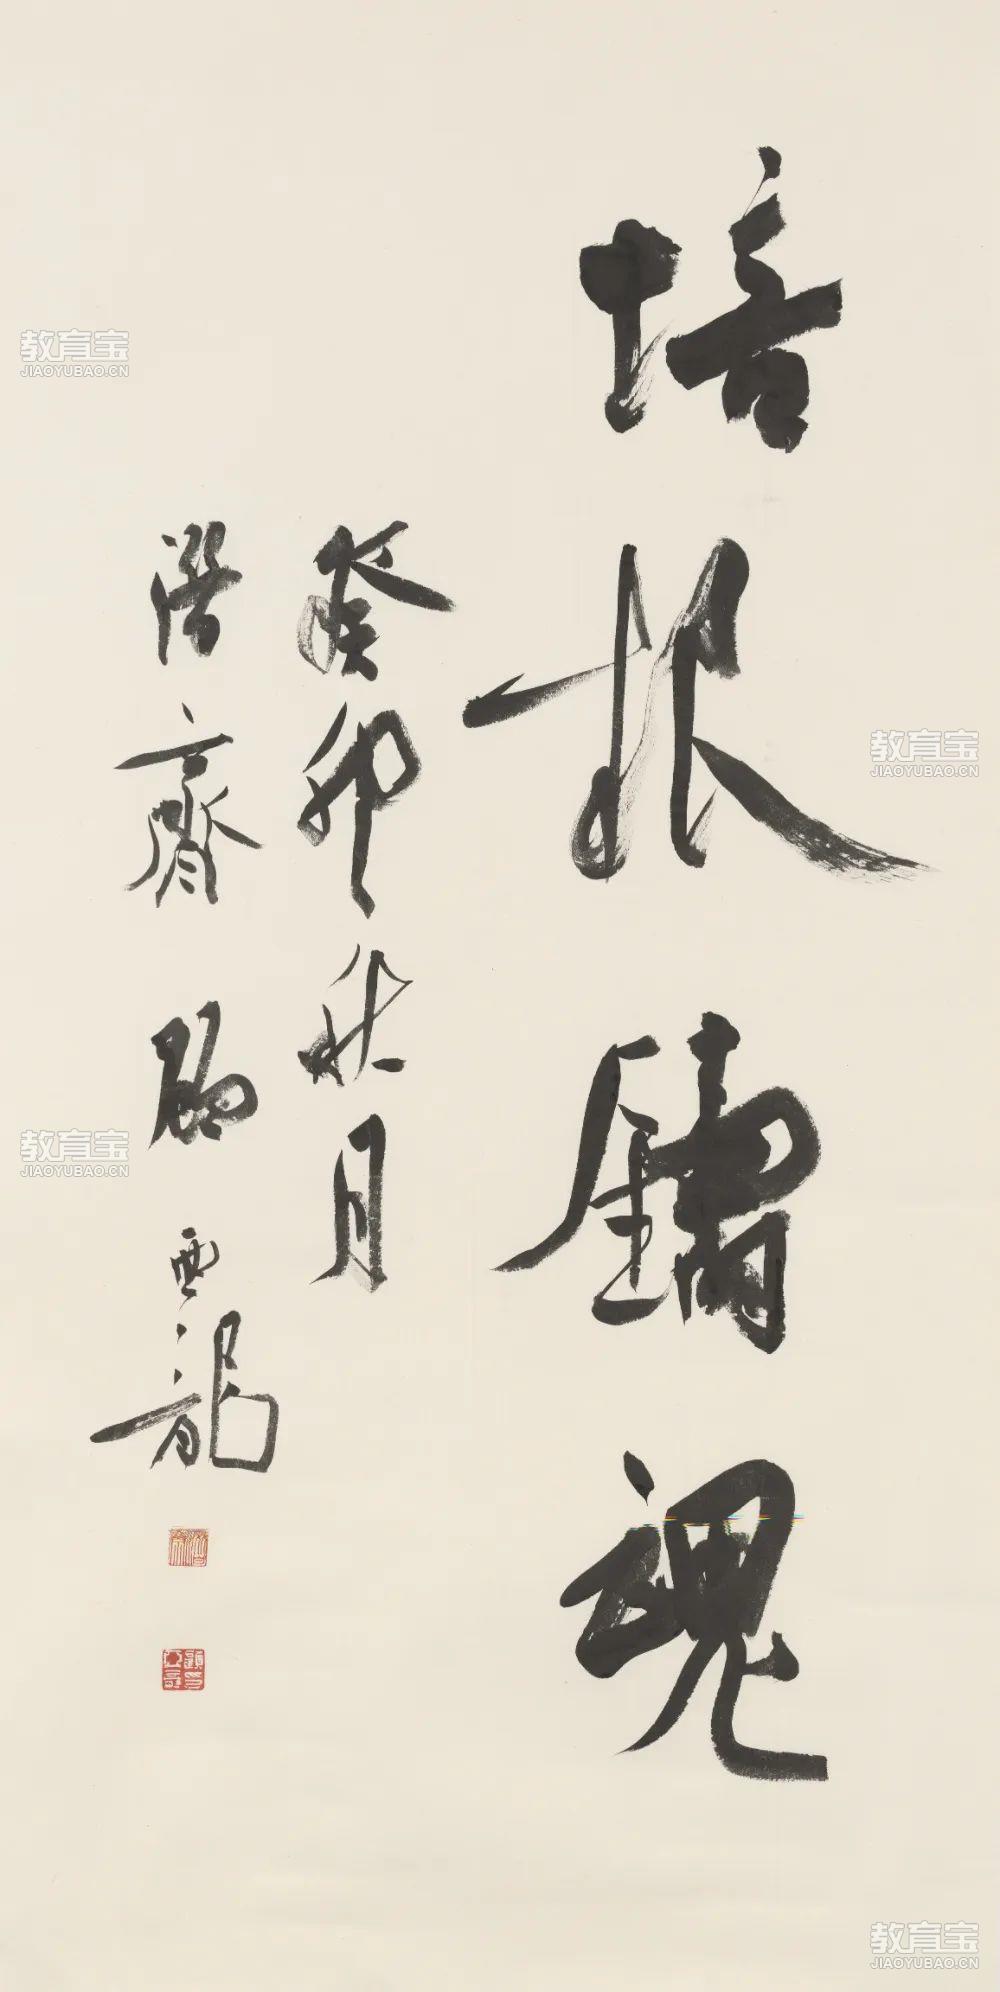 培根鑄魂
癸卯秋月
潛齋顧亞龍
教育宝
JIAOYUBAO.CN
教育宝
JIAOYUBAO.CN
教育宝
JIAOYUBAO.CN
教育宝
JIAOYUBAO.CN